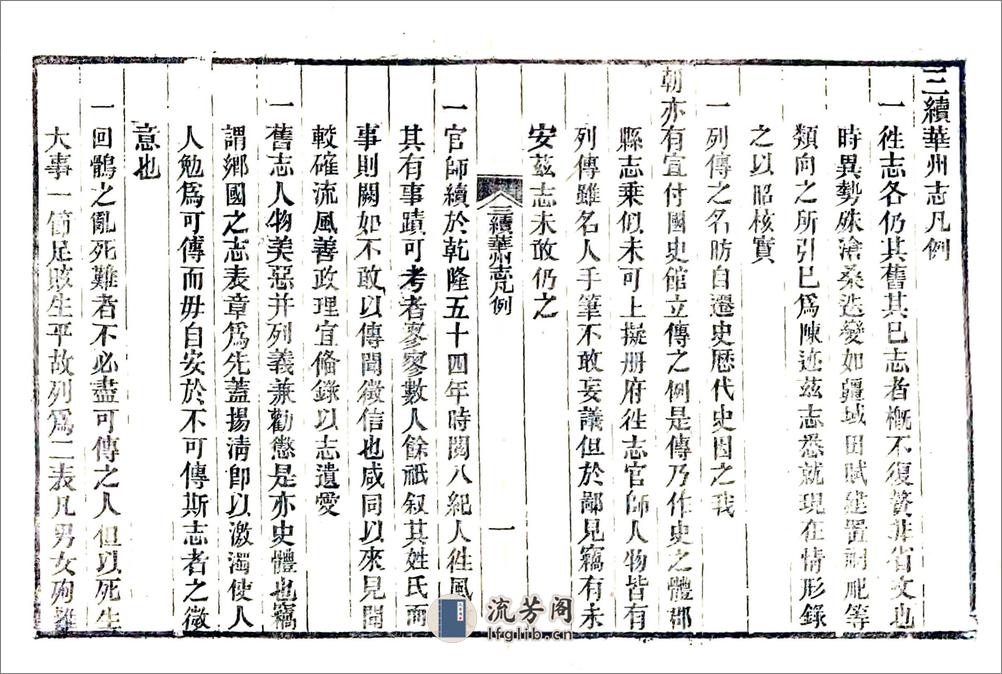 三續華州志凡例
一徃志各仍其舊其已志者槪不復贅非省文也
時異勢殊滄桑迭變如疆域田賦建置祠祀等
類向之所引已爲陳迹兹志悉就現在情形錄
之以昭核實
一列傳之名昉自遷史歷代史因之我
朝亦有宣付國史館立傳之例是傳乃作史之體郡
縣志乘似未可上擬册府徃志官師人物皆有
列傳雖名人手筆不敢妄議但於鄙見竊有未
安兹志未敢仍之
三續華州志凡例
一
一官師續於乾隆五十四年時閱八紀人徃風
其有事蹟可考者寥寥數人餘祇叙其姓氏而
事則闕如不敢以傳聞徵信也咸同以來見聞
較確流風善政理宜僃錄以志遺愛
一舊志人物美惡并列義兼勸懲是亦史體也竊
謂鄉國之志表章爲先蓋揚淸卽以激濁使人
人勉爲可傳而毋自安於不可傳斯志者之微
意也
一回鶻之亂死難者不必盡可傳之人但以死生
大事一節足賅生平故列爲二表凡男女殉難
流芳阁
lfglib.cn